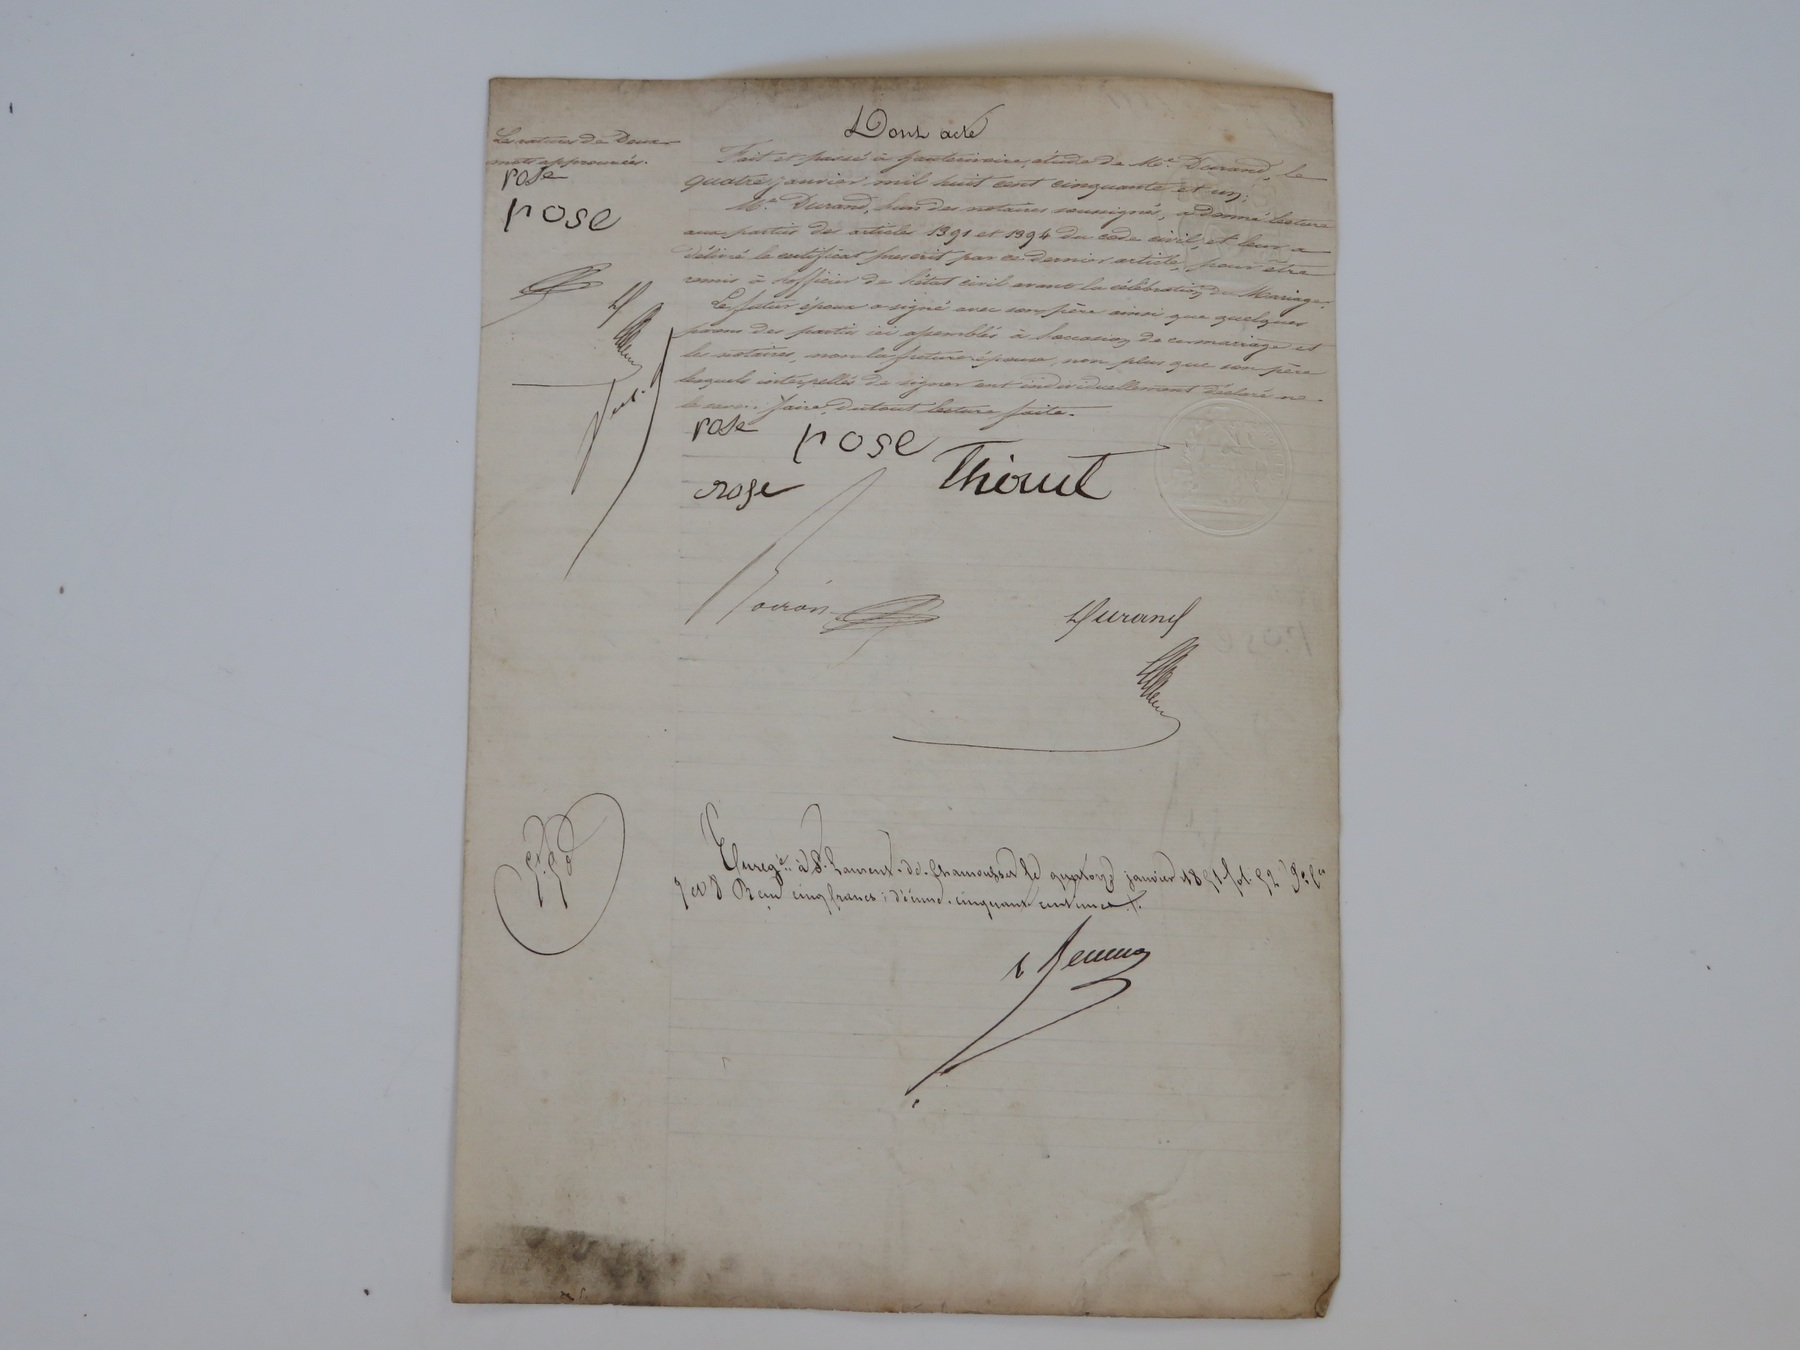 Dont acte
La rature de Deux
mots approuvée.
rose
rose
Fait et passé à hauterivoire, étude de Me. Durand, le
quatre janvier, mil huit cent cinquante et un;
Me. Durand, l'un des notaires soussignés, a donné lecture
aux parties des articles 1391 et 1394 du code civil, et leur a
délivré le certificat prescrit par ce dernier article, pour être
remis à l'officier de l'état civil avant la célébration du Mariage.
Le futur époux a signé avec son père ainsi que quelques
parens des parties ici assemblés à l'occasion de ce mariage et
les notaires, non la future épouse, non plus que son père
lesquels interpellés de signer ont individuellement déclaré ne
le savoir faire, du tout lecture faite.
rose rose
rose
Durand
Enregé. à St. Laurent-de-Chamousset le janvier 1851 fol. 52
7 et 8 Reçu cinq francs; décime cinquante centimes